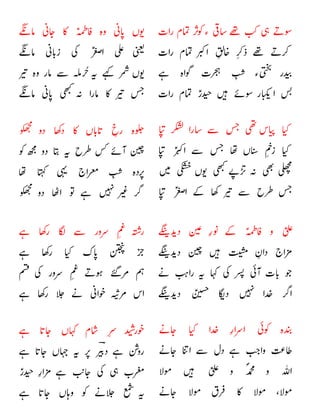 سوتے ہی کب تھے ساقیِ کوثر تمام رات
کرتے تھے ذکرِ خالقِ اکبر تمام رات
بیدر بختیِ شبِ ہجرت گواہ ہے
بس ایکبار سوئے ہیں حیدرؑ تمام رات
یوں پانی وہ فاطمہؑ کا جانی مانگے
یعنی علی اصغرؑ کی زبانی مانگے
یوں شمر کہے یہ حرملہ سے مار وہ تیر
جس تیر کا مارا نہ کبھی پانی مانگے
کیا پیاس تھی جس سے سارا لشکر تپا
کیا زخمِ سناں تھا جس سے اکبرؑ تپا
مچھلی بھی نہ تڑپے کبھی یوں خشکی میں
جس طرح سے تیر کھا کے اصغرؑ تپا
جلوہ رخِ تاباں کا دکھا دو مجھکو
چین آئے کس طرح یہ بتا دو مجھ کو
پردہ شبِ معراج یہی کہتا تھا
گر غیر نہیں ہے تو اٹھا دو مجھکو
و فاطمہؑ کے نورِ عین دیدینگے
مزاج دانِ مشیت ہیں چین دیدینگے
جو بات آئی پسر کی کہا یہ راہب نے
اگر خدا نہیں دیگا حسینؑ دیدینگے
رشتہ غمِ سرور سے لگا رکھا ہے
جز پنجتن پاک کیا رکھا ہے
ہم مرگئے ہوتے غمِ سرور کی قسم
اس مرثیہ خوانی نے جلا رکھا ہے
بندہ کوئی اسرارِ خدا کیا جانے
طاعت واجب ہے دل سے اتنا جانے
اللہ و محمدؐ و ہیں مولا
مولا، مولا کا فرق مولا جانے
خورشید سرِ شام کہاں جاتا ہے
روشن ہے دبیر پر یہ جہاں جاتا ہے
مغرب ہی کی جانب ہے مزارِ حیدرؑ
یہ شمع جلانے کو وہاں جاتا ہے